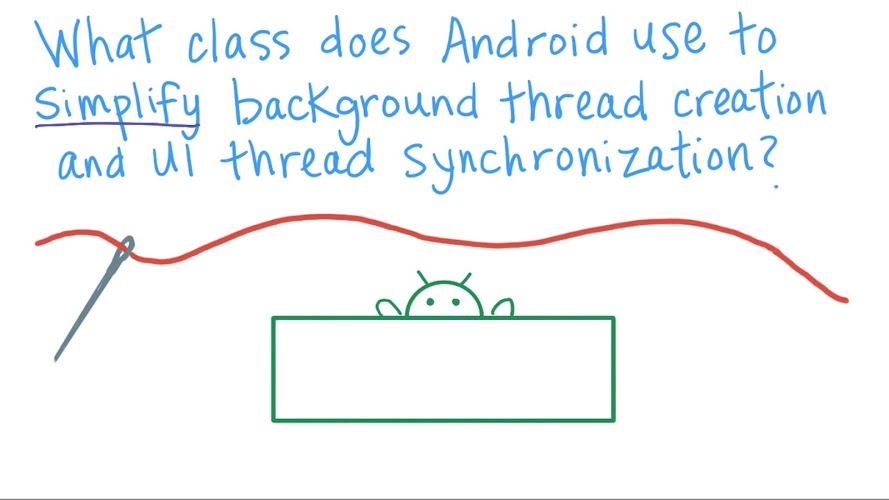 What class does Android use to
simplify background thread creation
and UI thread synchronization?